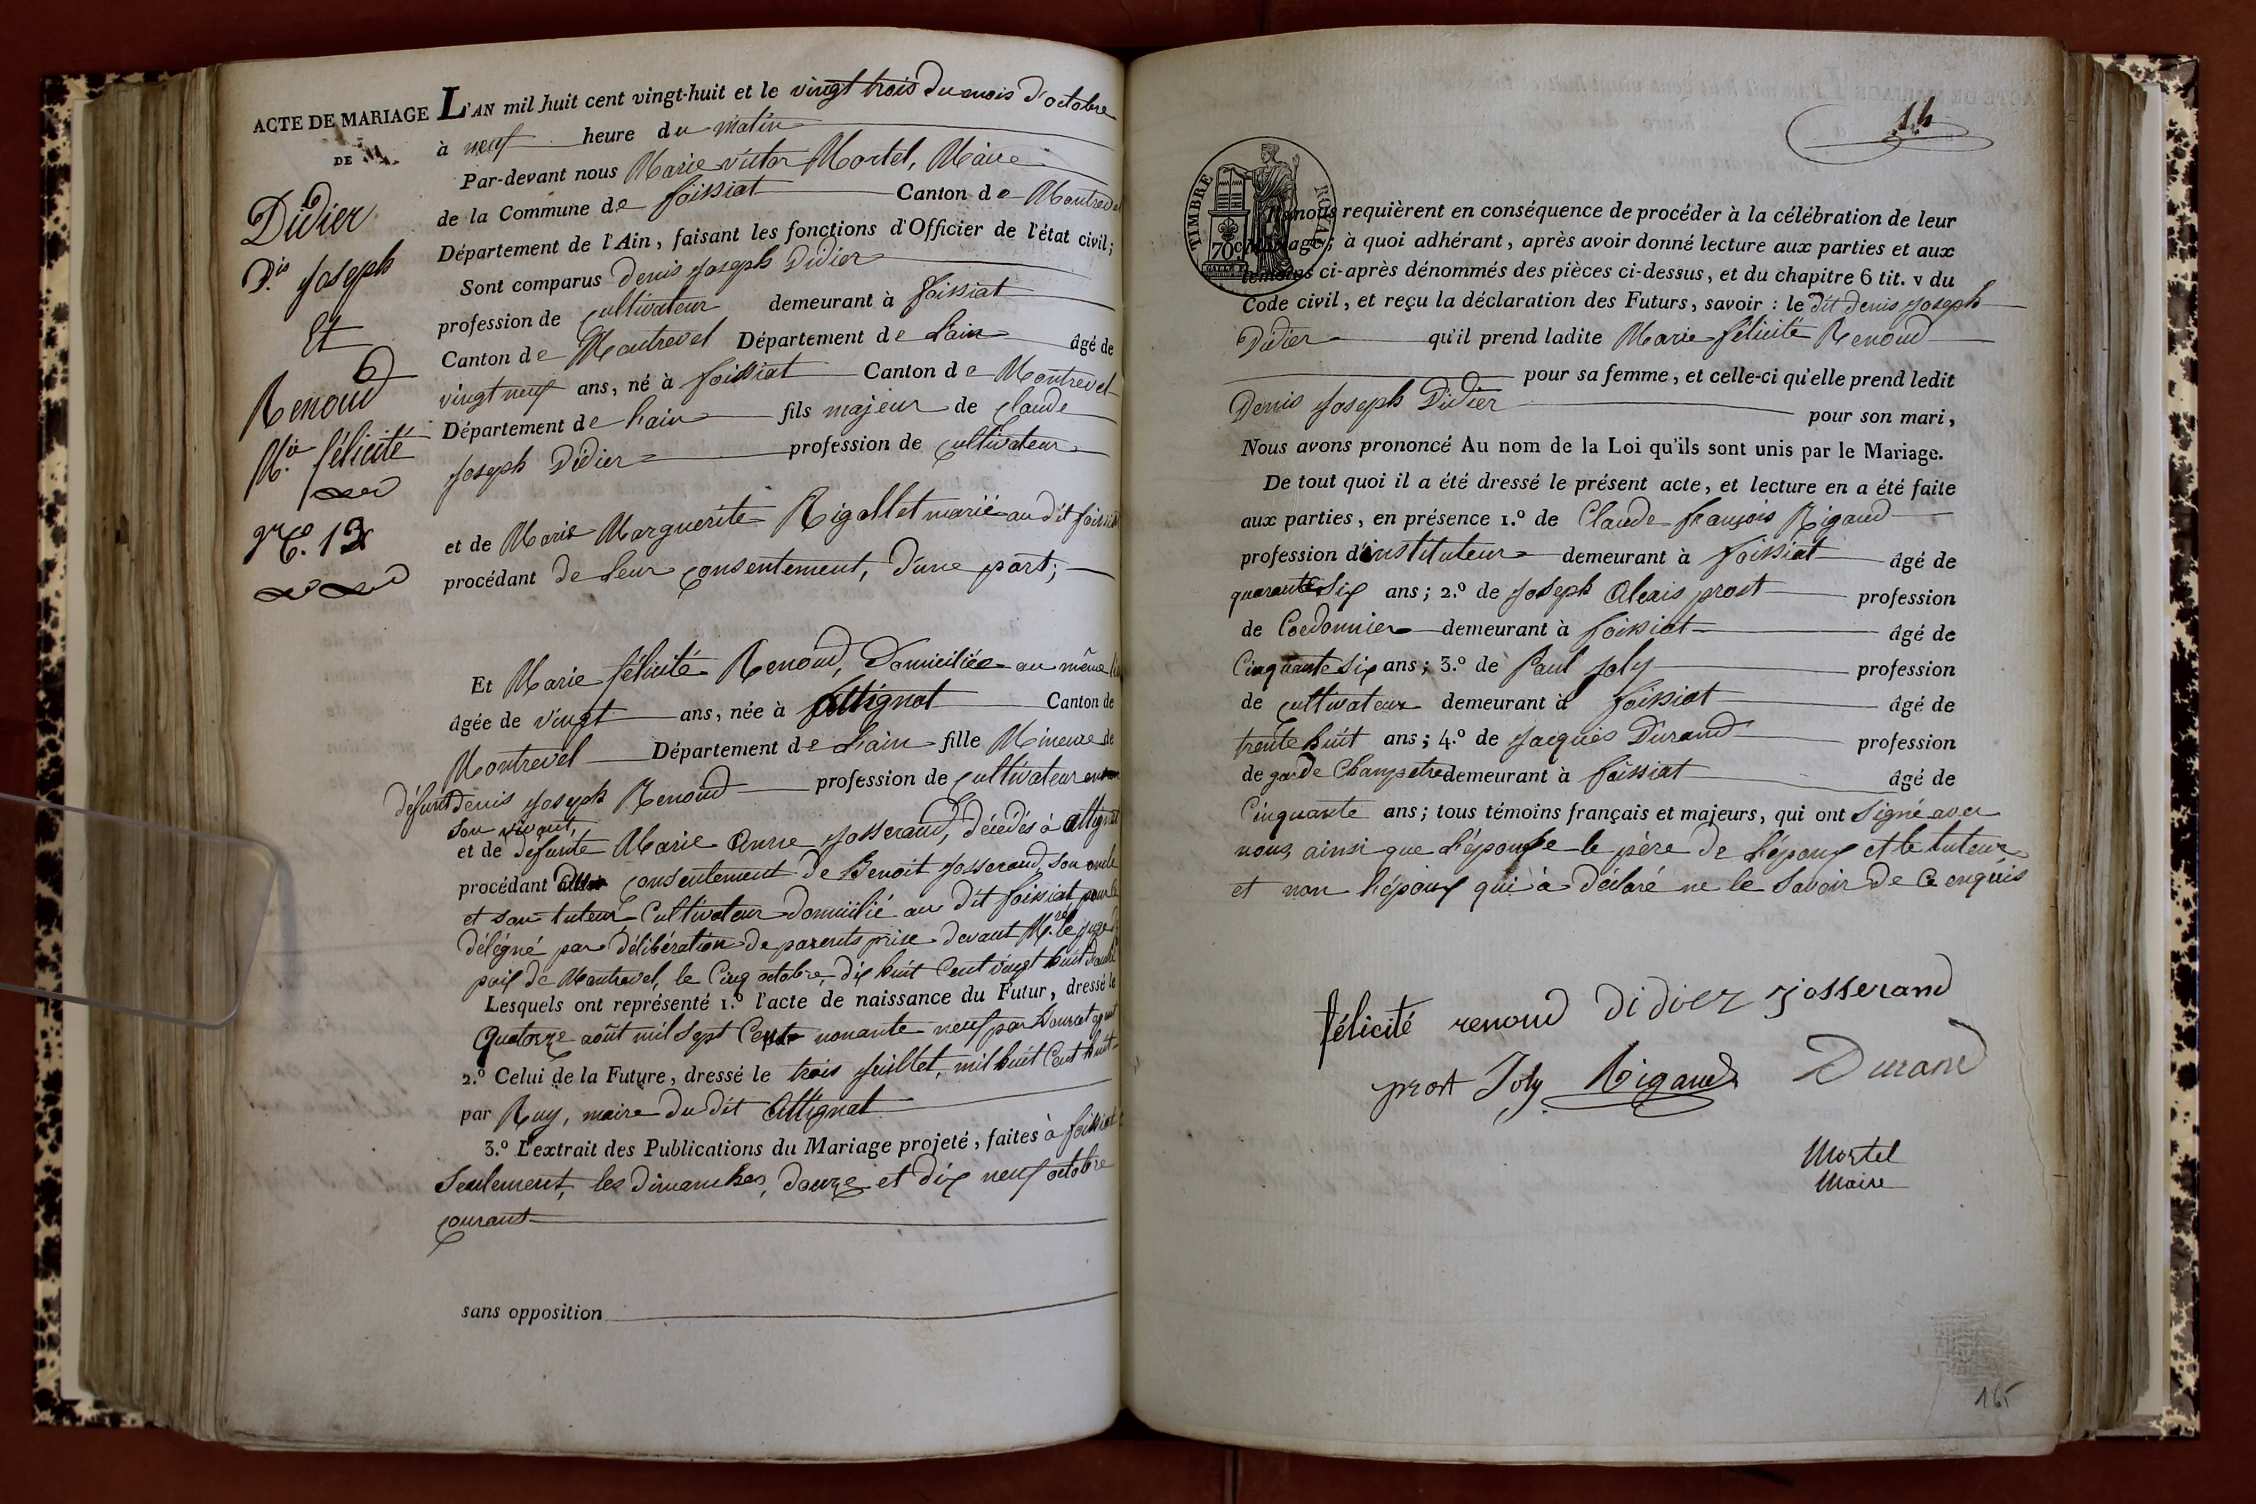 ACTE DE MARIAGE
DE
Didier
D.is Joseph
Et
Renoud
M.ie félicité
N.o 13
L'AN mil huit cent vingt-huit et le vingt trois du mois d'octobre
à neuf heure du matin
Par-devant nous Marie victor Mortel, Maire
de la Commune de foissiat Canton de Montrevel
Département de l'Ain, faisant les fonctions d'Officier de l'état civil;
Sont comparus Denis Joseph Didier
profession de Cultivateur demeurant à foissiat
Canton de Montrevel Département de L'ain âgé de
vingt neuf ans, né à foissiat Canton de Montrevel
Département de L'ain fils majeur de Claude
Joseph Didier profession de Cultivateur
et de Marie Marguerite Rigollet marié au dit foissiat
procédant de Leur Consentement, d'une part;
Et Marie félicité Renoud, Domiciliée au même
âgée de vingt ans, née à Attignat Canton de
Montrevel Département de L'ain fille Mineure de
défunt Denis Joseph Renoud profession de Cultivateur en
son vivant,
et de défunte Marie Anne Josserand, décédés à Attignat
procédant Consentement de Benoit Josserand, son oncle
et son tuteur Cultivateur domicilié au dit foissiat pour le
délégué par délibération de parents prise devant M.r le juge de
paix de Montrevel, le Cinq octobre, dix huit Cent vingt huit
Lesquels ont représenté 1.º l'acte de naissance du Futur, dressé le
Quatorze août mil Sept Cent nonante neuf par
2.º Celui de la Future, dressé le trois Juillet, mil huit Cent huit
par Ruy, maire du dit Attignat
3.º L'extrait des Publications du Mariage projeté, faites à foissiat
Seulement, les dimanches, douze et dix neuf octobre
Courant
sans opposition
14
TIMBRE ROYAL
70c
nous requièrent en conséquence de procéder à la célébration de leur
mariage; à quoi adhérant, après avoir donné lecture aux parties et aux
témoins ci-après dénommés des pièces ci-dessus, et du chapitre 6 tit. v du
Code civil, et reçu la déclaration des Futurs, savoir : le dit denis Joseph
Didier qu'il prend ladite Marie félicité Renoud
pour sa femme, et celle-ci qu'elle prend ledit
Denis Joseph Didier pour son mari,
Nous avons prononcé Au nom de la Loi qu'ils sont unis par le Mariage.
De tout quoi il a été dressé le présent acte, et lecture en a été faite
aux parties, en présence 1.º de Claude françois Rigaud
profession d'instituteur demeurant à foissiat âgé de
quarante Six ans; 2.º de Joseph Alexis prost profession
de Cordonnier demeurant à foissiat âgé de
Cinquante Six ans; 3.º de Paul Joly profession
de cultivateur demeurant à foissiat âgé de
trente huit ans; 4.º de Jacques Durand profession
de garde Champetre demeurant à foissiat âgé de
Cinquante ans; tous témoins français et majeurs, qui ont Signé avec
nous, ainsi que L'épouse le père de L'époux et le tuteur
et non L'époux qui à déclaré ne le Savoir de Ce enquis
félicité renoud didier Josserand
prost Joly Rigaud Durand
Mortel
Maire
165